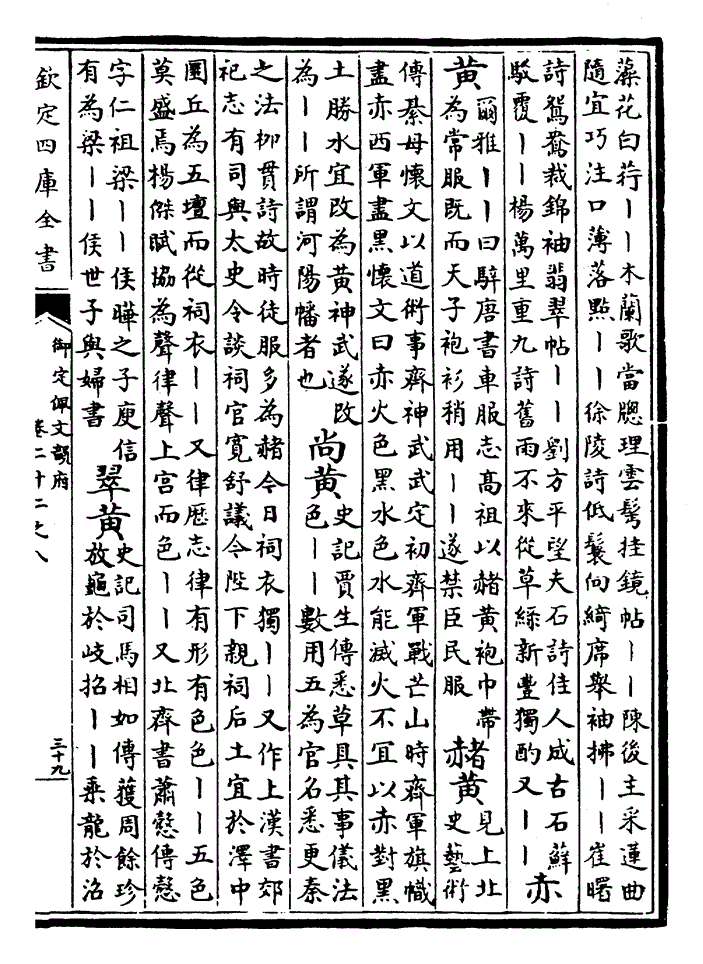 藻花白荇丨丨木蘭歌當牕理雲鬢挂鏡帖丨丨陳後主采蓮曲
隨宜巧注口薄落點丨丨徐陵詩低鬟向綺席舉袖拂丨丨崔曙
詩鴛鴦裁錦袖翡翠帖丨丨劉方平望夫石詩佳人成古石蘚
駮覆丨丨楊萬里重九詩舊雨不來從草綠新豐獨酌又丨丨 赤
黄 爾雅丨丨曰騂唐書車服志髙祖以赭黄袍巾帶
為常服既而天子袍衫稍用丨丨遂禁臣民服 赭黄 見上北
史藝術
傳綦母懷文以道術事齊神武武定初齊軍戰芒山時齊軍旗幟
盡赤西軍盡黑懷文曰赤火色黑水色水能滅火不宜以赤對黑
土勝水宜改為黄神武遂改
為丨丨所謂河陽幡者也 尚黄 史記賈生傳悉草具其事儀法
色丨丨數用五為官名悉更秦
之法栁貫詩故時徒服多為赭今日祠衣獨丨丨又作上漢書郊
祀志有司與太史令談祠官寛舒議令陛下親祠后土宜於澤中
圜丘為五壇而從祠衣丨丨又律厯志律有形有色色丨丨五色
莫盛焉楊傑賦協為聲律聲上宫而色丨丨又北齊書蕭慤傳慤
字仁祖梁丨丨侯曄之子庾信
有為梁丨丨侯世子與婦書 翠黄 史記司馬相如傳獲周餘珍
放龜於岐招丨丨乘龍於沼
欽定四庫全書
御定佩文韻府
卷二十二之八
三十九